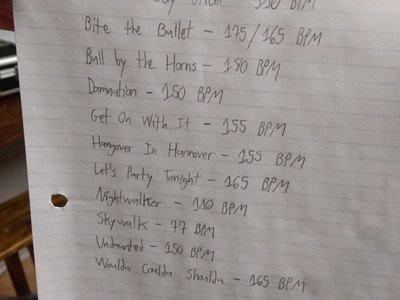 Bite the Bullet - 175/165 BPM
Bull by the Horns - 180 BPM
Damnation - 150 BPM
Get On With It - 155 BPM
Hangover In Hannover - 155 BPM
Let's Party Tonight - 165 BPM
Nightwalker - 110 BPM
Skywalk - 77 BPM
Undaunted - 150 BPM
Woulda Coulda Shoulda - 165 BPM